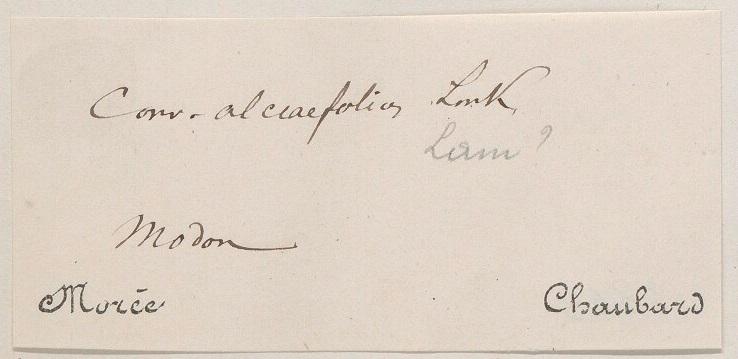 Conv. alceaefolia Link
Lam ?
Modon
Morée Chaubard